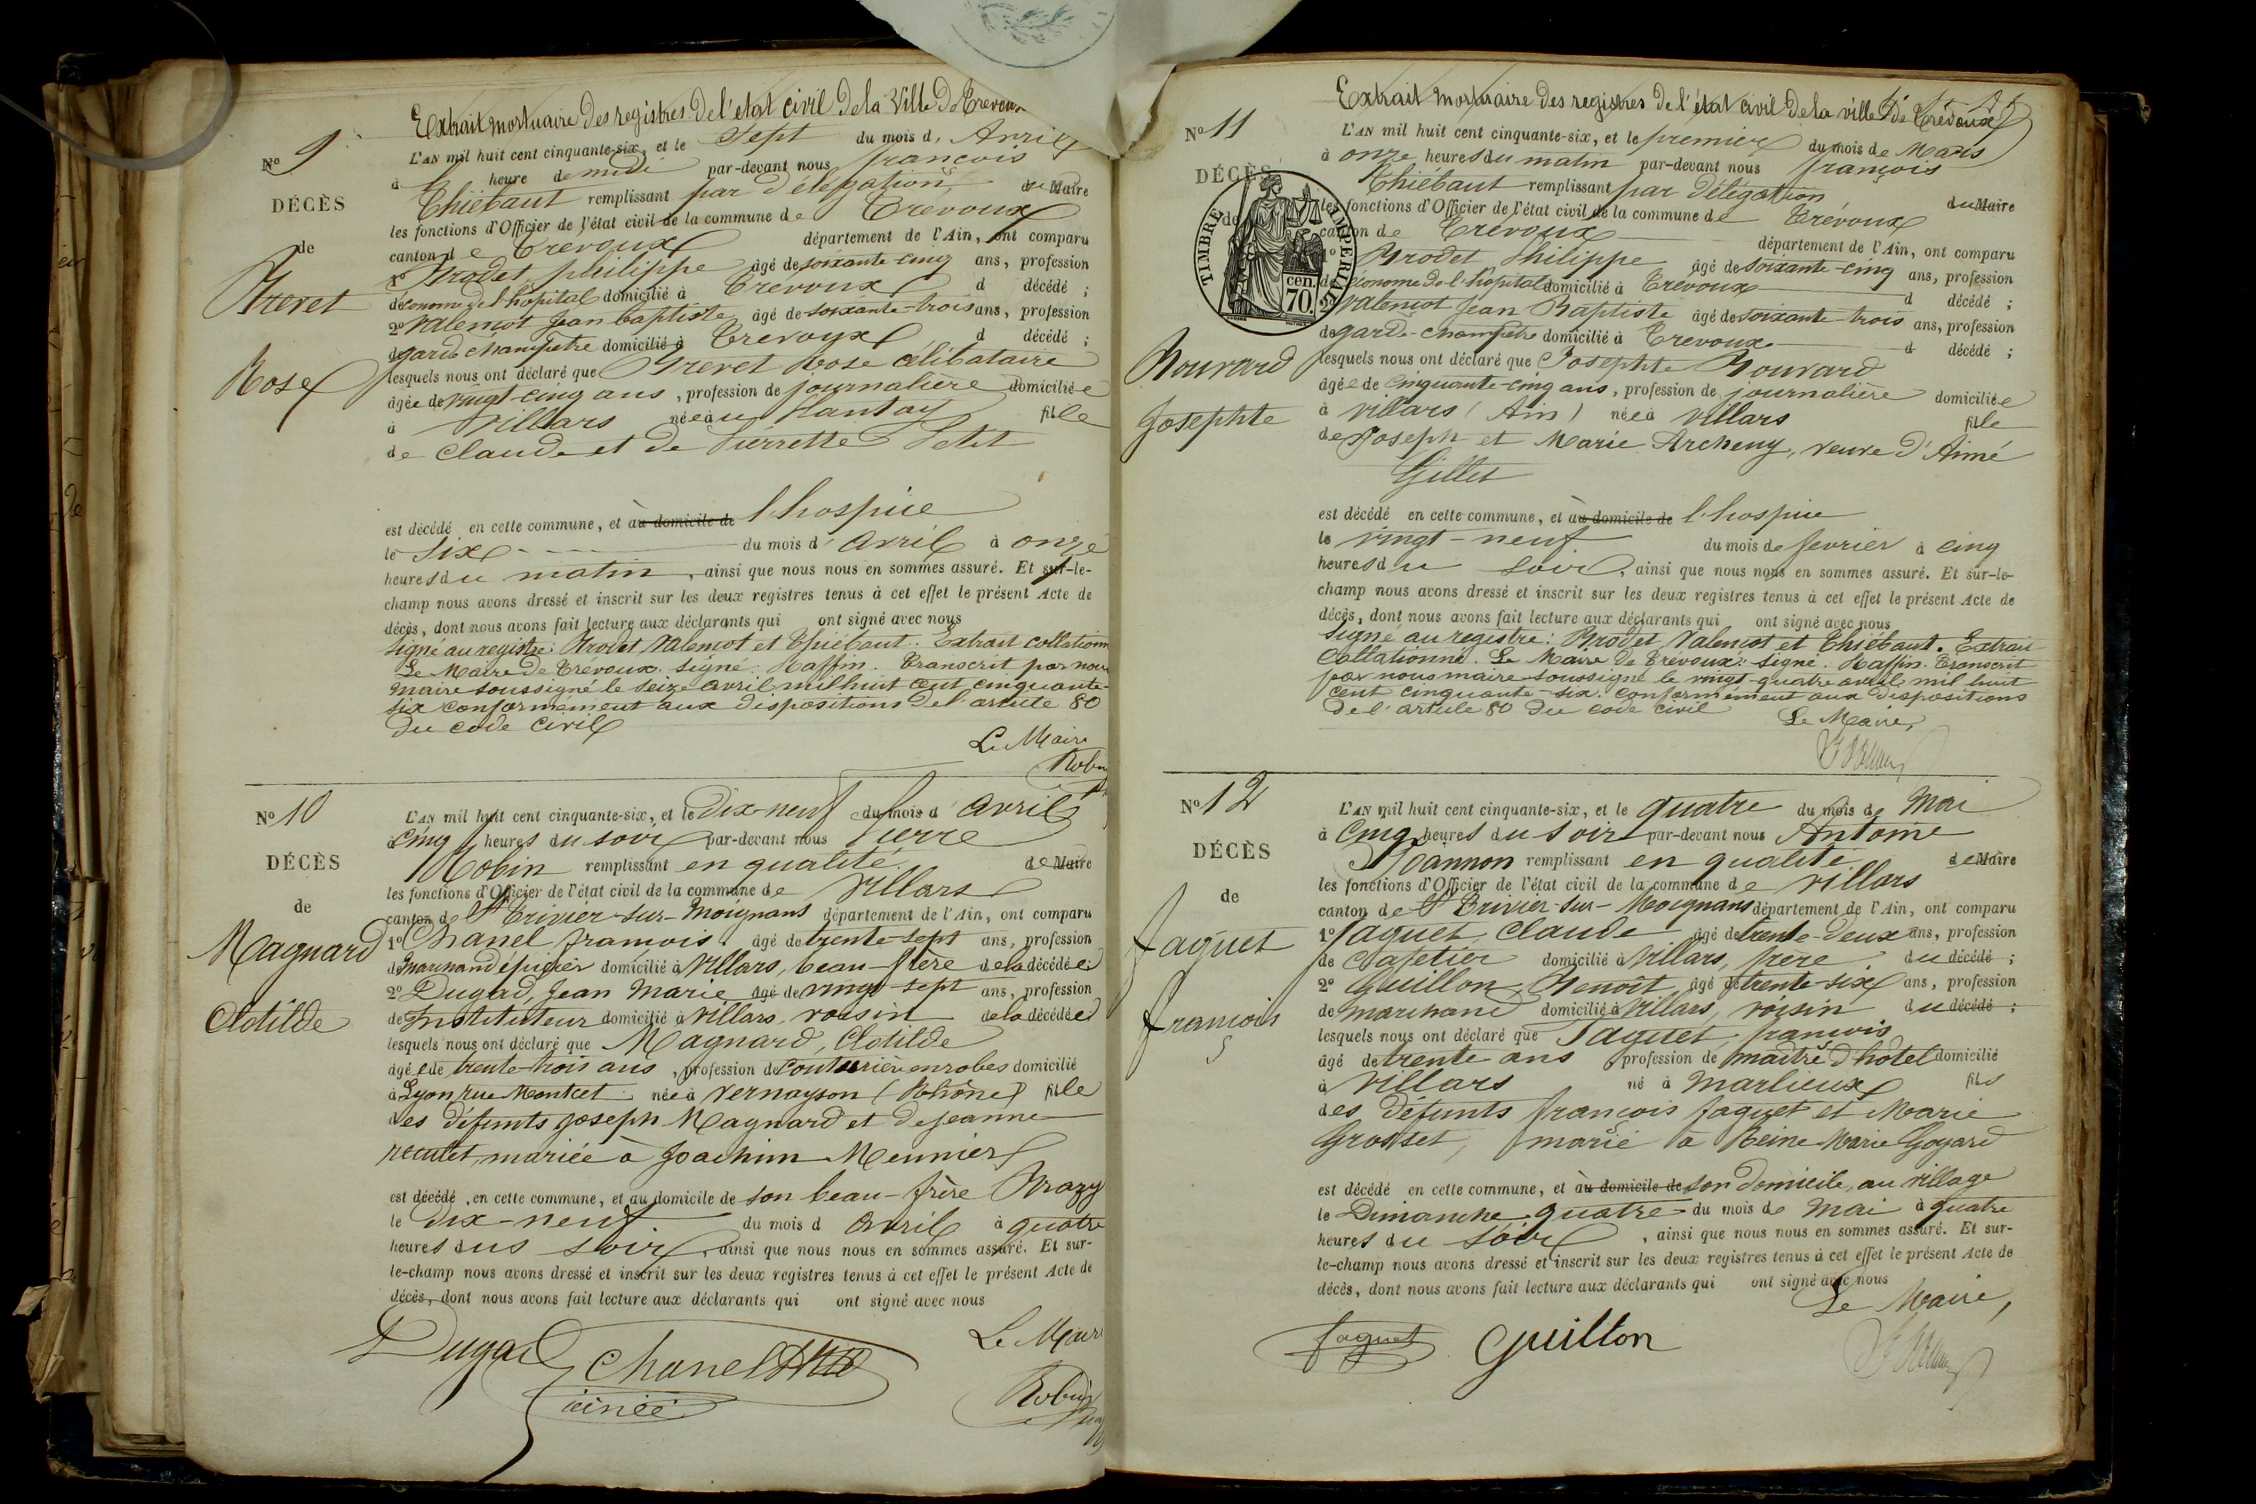 Extrait mortuaire des registres de l'état civil de la Ville de Trevoux
No 9
L'AN mil huit cent cinquante-six, et le Sept du mois d' Avril
à heure de midi par-devant nous françois
DÉCÈS
Thiébaut remplissant par délégation du Maire
les fonctions d'Officier de l'état civil de la commune de Trevoux
de
canton de Trevoux département de l'Ain, ont comparu
1º Brodet philippe âgé de soixante-cinq ans, profession
Greret
d'économe de l'hopital domicilié à Trevoux d décédé ;
2º Valençot Jean baptiste âgé de soixante-trois ans, profession
de garde champêtre domicilié à Trevoux d décédé ;
Rose
lesquels nous ont déclaré que Greret Rose célibataire
âgée de vingt-cinq ans, profession de journalière domiciliée
à Villars née à au Plantay fille
de Claude et de Pierrette Petit
est décédé en cette commune, et au domicile de l'hospice
le six du mois d' avril à onze
heures du matin, ainsi que nous nous en sommes assuré. Et sur-le-
champ nous avons dressé et inscrit sur les deux registres tenus à cet effet le présent Acte de
décès, dont nous avons fait lecture aux déclarants qui ont signé avec nous
signé au registre: Brodet Valençot et Thiébaut. Extrait collationné
Le Maire de Trévoux. signé: Raffin. Transcrit par nous
maire soussigné le seize avril mil huit cent cinquante-
six conformement aux dispositions de l'article 80
du code civil
Le Maire
Robin
No 10
L'AN mil huit cent cinquante-six, et le Dix-neuf du mois d' avril
à cinq heures du soir par-devant nous Pierre
DÉCÈS
Robin remplissant en qualité de Maire
les fonctions d'Officier de l'état civil de la commune de Villars
de
canton de St Trivier-sur-Moignans département de l'Ain, ont comparu
Magnard
1º Chanel françois âgé de trente-sept ans, profession
de marchand épicier domicilié à Villars, beau-frère de la décédée
2º Dugad, Jean Marie âgé de vingt-sept ans, profession
Clotilde
de Instituteur domicilié à Villars voisin de la décédée
lesquels nous ont déclaré que Magnard, Clotilde
âgée de trente-trois ans, profession de couturière en robes domicilié
à Lyon rue Montcet née à Vernayson (Rhône) fille
des défunts Joseph Magnard et de Jeanne
recutet, mariée à Joachim Meunier
est décédé en cette commune, et au domicile de son beau-frère Brazy
le Dix-neuf du mois d avril à quatre
heures dus soir, ainsi que nous nous en sommes assuré. Et sur-
le-champ nous avons dressé et inscrit sur les deux registres tenus à cet effet le présent Acte de
décès, dont nous avons fait lecture aux déclarants qui ont signé avec nous
Dugad Chanel
ainée
Le Maire
Robin
Extrait mortuaire des registres de l'état civil de la ville de Trévoux
No 11
L'AN mil huit cent cinquante-six, et le premier du mois de Mars
à onze heures du matin par-devant nous françois
DÉCÈS
Thiébaut remplissant par délégation du Maire
de
les fonctions d'Officier de l'état civil de la commune de Trévoux
canton de Trevoux département de l'Ain, ont comparu
TIMBRE IMPERIAL
cen.
70.
1º Brodet Philippe âgé de soixante-cinq ans, profession
d'économe de l'hopital domicilié à Trevoux d décédé ;
2º Valençot Jean Baptiste âgé de soixante-trois ans, profession
de garde-champêtre domicilié à Trevoux d décédé ;
Bouvard
lesquels nous ont déclaré que Josephte Bouvard
âgée de cinquante-cinq ans, profession de journalière domiciliée
Josephte
à Villars (Ain) née à Villars fille
de Joseph et Marie Archeny, veuve d'Aimé
Gillet
est décédé en cette commune, et au domicile de l'hospice
le vingt-neuf du mois de fevrier à cinq
heures du soir, ainsi que nous nous en sommes assuré. Et sur-le-
champ nous avons dressé et inscrit sur les deux registres tenus à cet effet le présent Acte de
décès, dont nous avons fait lecture aux déclarants qui ont signé avec nous
signé au registre: Brodet, Valençot et Thiébaut. Extrait
Collationné. Le Maire de Trévoux: signé: Raffin. Transcrit
par nous maire soussigné le vingt-quatre avril mil huit
cent cinquante-six. conformément aux dispositions
de l'article 80 du code civil
Le Maire,
No 12
L'AN mil huit cent cinquante-six, et le quatre du mois de Mai
à Cinq heures du soir par-devant nous Antoine
DÉCÈS
remplissant en qualité de Maire
les fonctions d'Officier de l'état civil de la commune de Villars
de
canton de St Trivier-sur-Moignans département de l'Ain, ont comparu
Jaquet
1º Jaquet, Claude âgé de trente-deux ans, profession
de Cafetier domicilié à Villars, frère du décédé ;
2º Guillon, Benoît âgé de trente-six ans, profession
françois
de marchand domicilié à Villars, voisin du décédé ;
lesquels nous ont déclaré que Jaquet, françois
âgé de trente ans, profession de maître d'hôtel domicilié
à Villars né à Marlieux fils
des défunts françois Jaquet et Marie
Grosset, marié à Reine Marie Goyard
est décédé en cette commune, et au domicile de son domicile, au village
le Dimanche quatre du mois de Mai à quatre
heures du soir, ainsi que nous nous en sommes assuré. Et sur-
le-champ nous avons dressé et inscrit sur les deux registres tenus à cet effet le présent Acte de
décès, dont nous avons fait lecture aux déclarants qui ont signé avec nous
Le Maire,
Jaquet Guillon